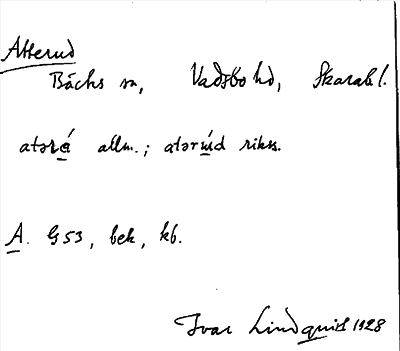 Atterud
Bäcks sn, Vadsbo hd, Skarab l.
atərá allm.; atərúd rikss.
A. G 53, bek, kb.
Ivar Lindquist 1928